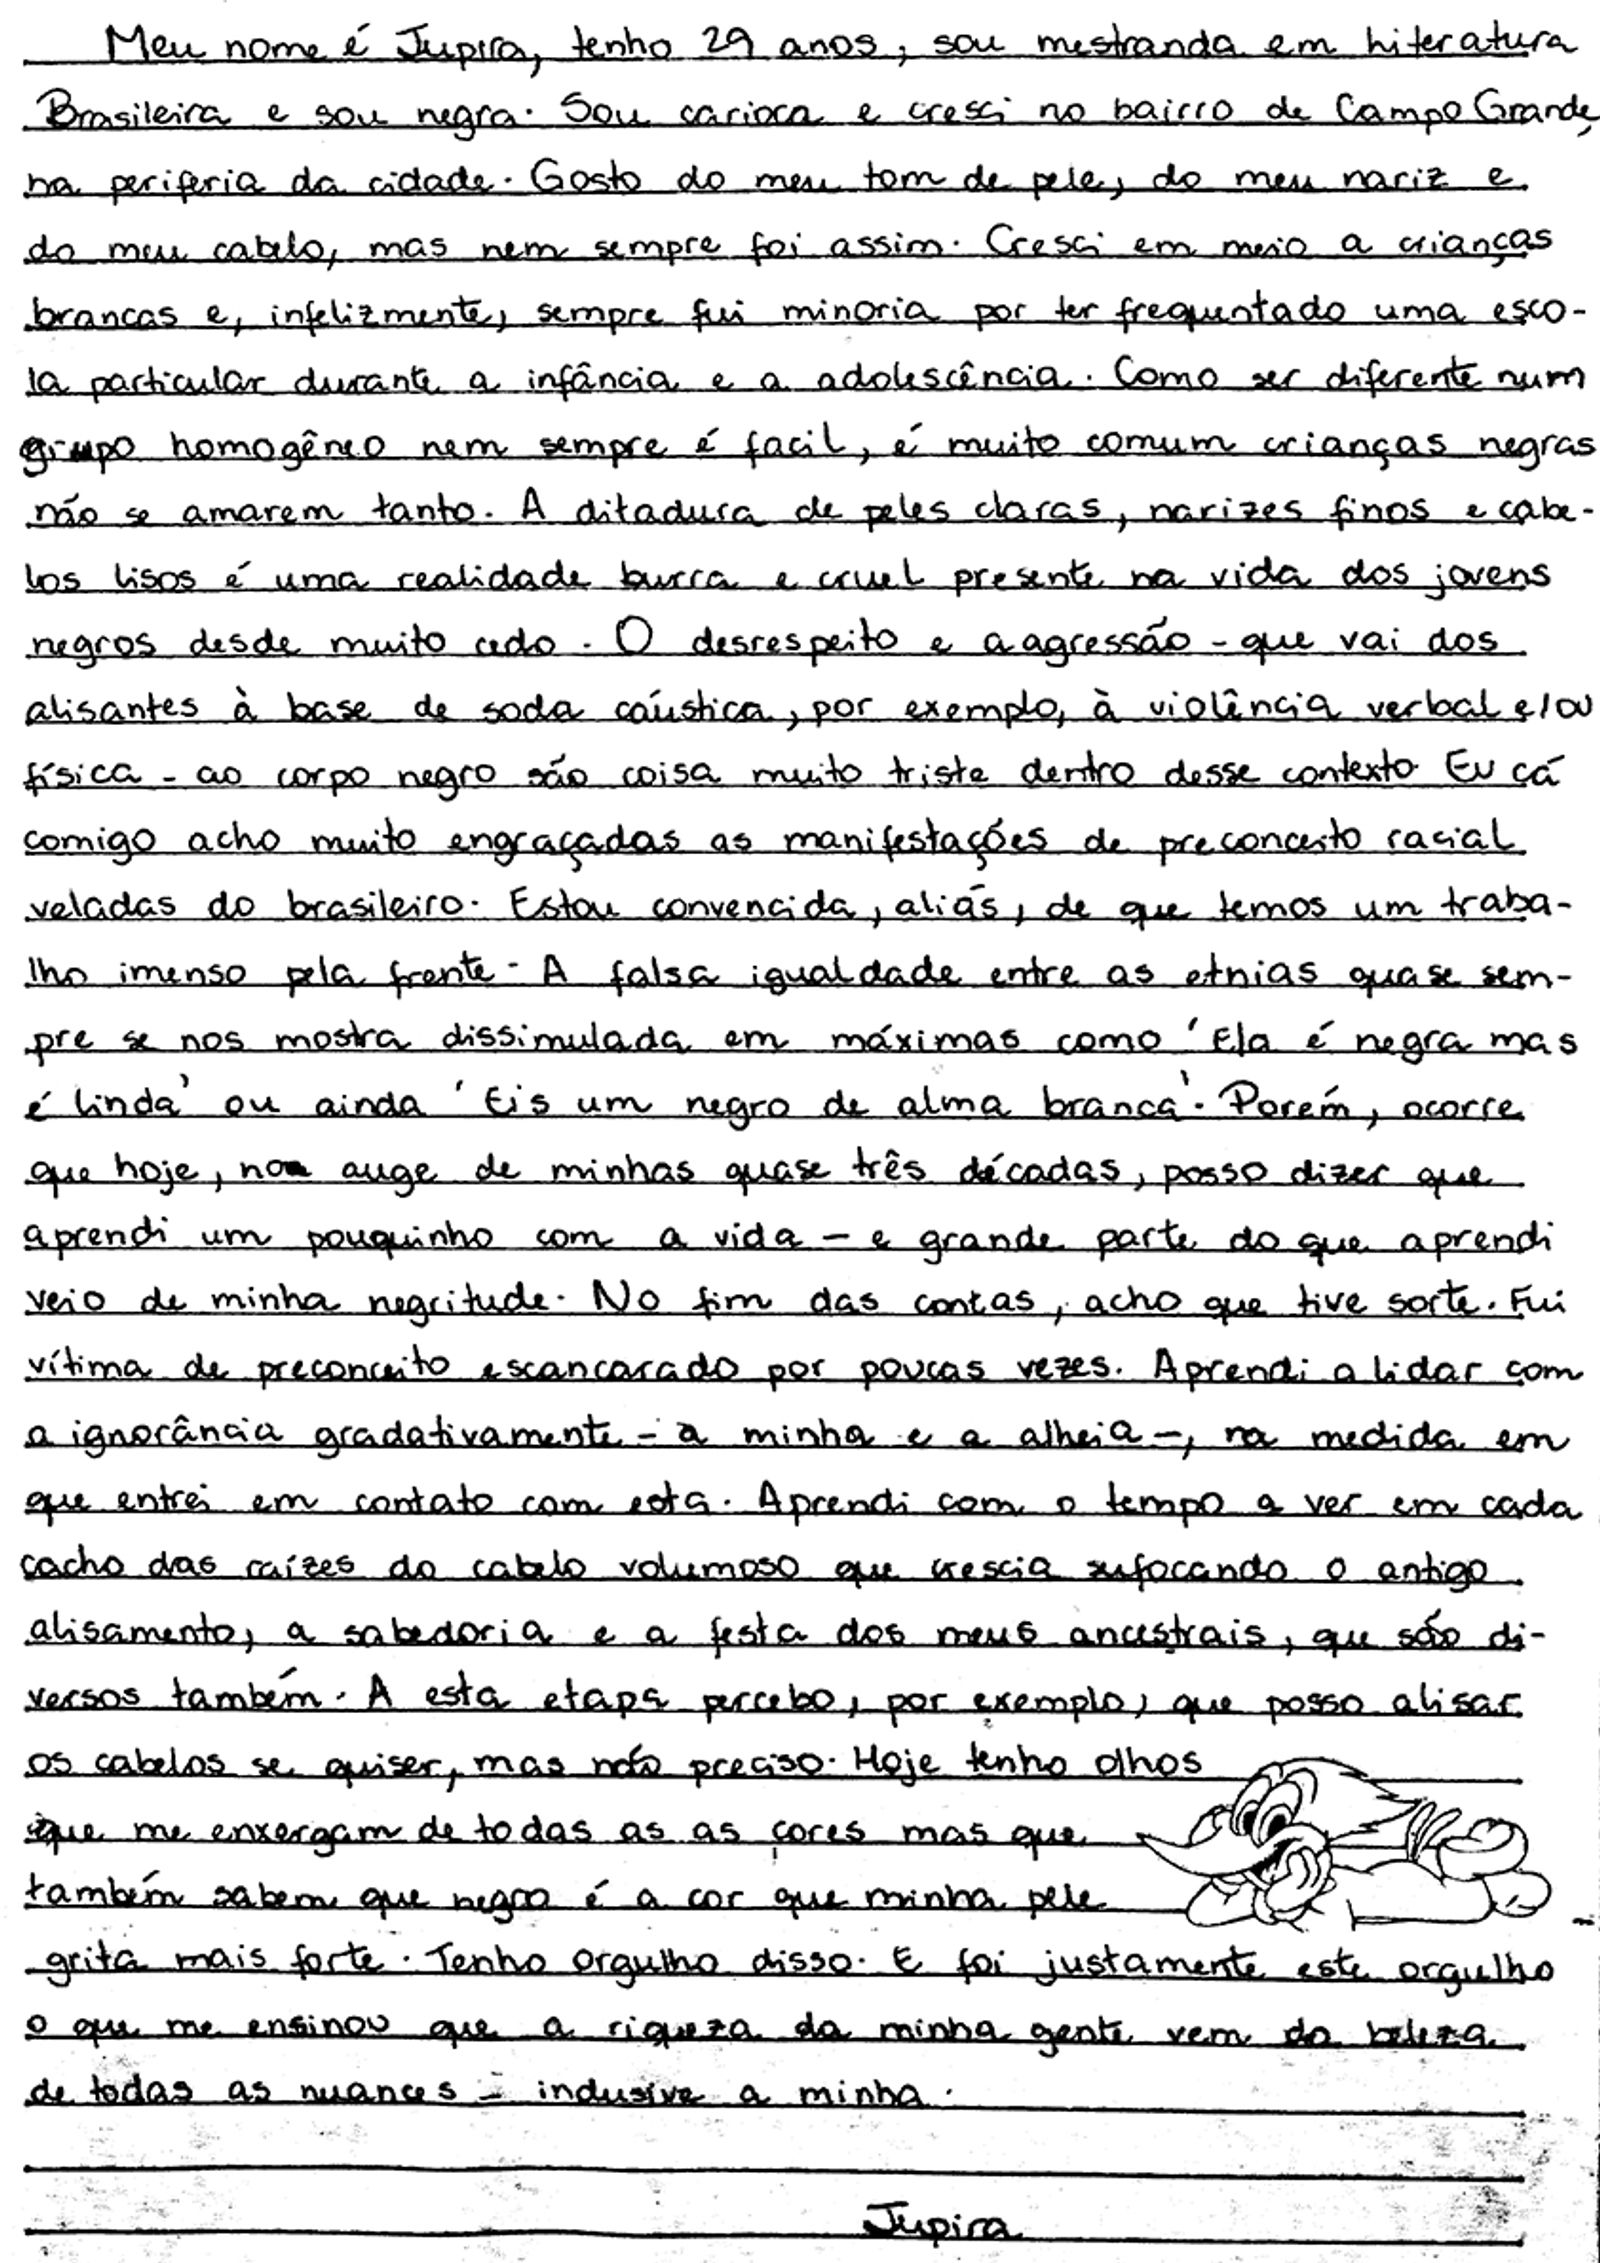 Meu nome é Jupira, tenho 29 anos, sou mestranda em Literatura
Brasileira e sou negra. Sou carioca e cresci no bairro de Campo Grande,
na periferia da cidade. Gosto do meu tom de pele, do meu nariz e
do meu cabelo, mas nem sempre foi assim. Cresci em meio a crianças
brancas e, infelizmente, sempre fui minoria por ter frequentado uma esco-
la particular durante a infância e a adolescência. Como ser diferente num
grupo homogêneo nem sempre é facil, é muito comum crianças negras
não se amarem tanto. A ditadura de peles claras, narizes finos e cabe-
los lisos é uma realidade burra e cruel presente na vida dos jovens
negros desde muito cedo. O desrespeito e a agressão - que vai dos
alisantes à base de soda caústica, por exemplo, à violência verbal e/ou
física - ao corpo negro são coisa muito triste dentro desse contexto. Eu cá
comigo acho muito engraçadas as manifestações de preconceito racial
veladas do brasileiro. Estou convencida, aliás, de que temos um traba-
lho imenso pela frente. A falsa igualdade entre as etnias quase sem-
pre se nos mostra dissimulada em máximas como 'Ela é negra mas
é linda' ou ainda 'Eis um negro de alma branca'. Porém, ocorre
que hoje, no auge de minhas quase três décadas, posso dizer que
aprendi um pouquinho com a vida - e grande parte do que aprendi
veio de minha negritude. No fim das contas, acho que tive sorte. Fui
vítima de preconceito escancarado por poucas vezes. Aprendi a lidar com
a ignorância gradativamente - a minha e a alheia -, na medida em
que entrei em contato com esta. Aprendi com o tempo a ver em cada
cacho das raízes do cabelo volumoso que crescia sufocando o antigo
alisamento, a sabedoria e a festa dos meus ancestrais, que são di-
versos também. A esta etapa percebo, por exemplo, que posso alisar
os cabelos se quiser, mas não preciso. Hoje tenho olhos
que me enxergam de todas as as cores mas que
também sabem que negro é a cor que minha pele
grita mais forte. Tenho orgulho disso. E foi justamente este orgulho
o que me ensinou que a riqueza da minha gente vem da beleza
de todas as nuances - inclusive a minha.
Jupira